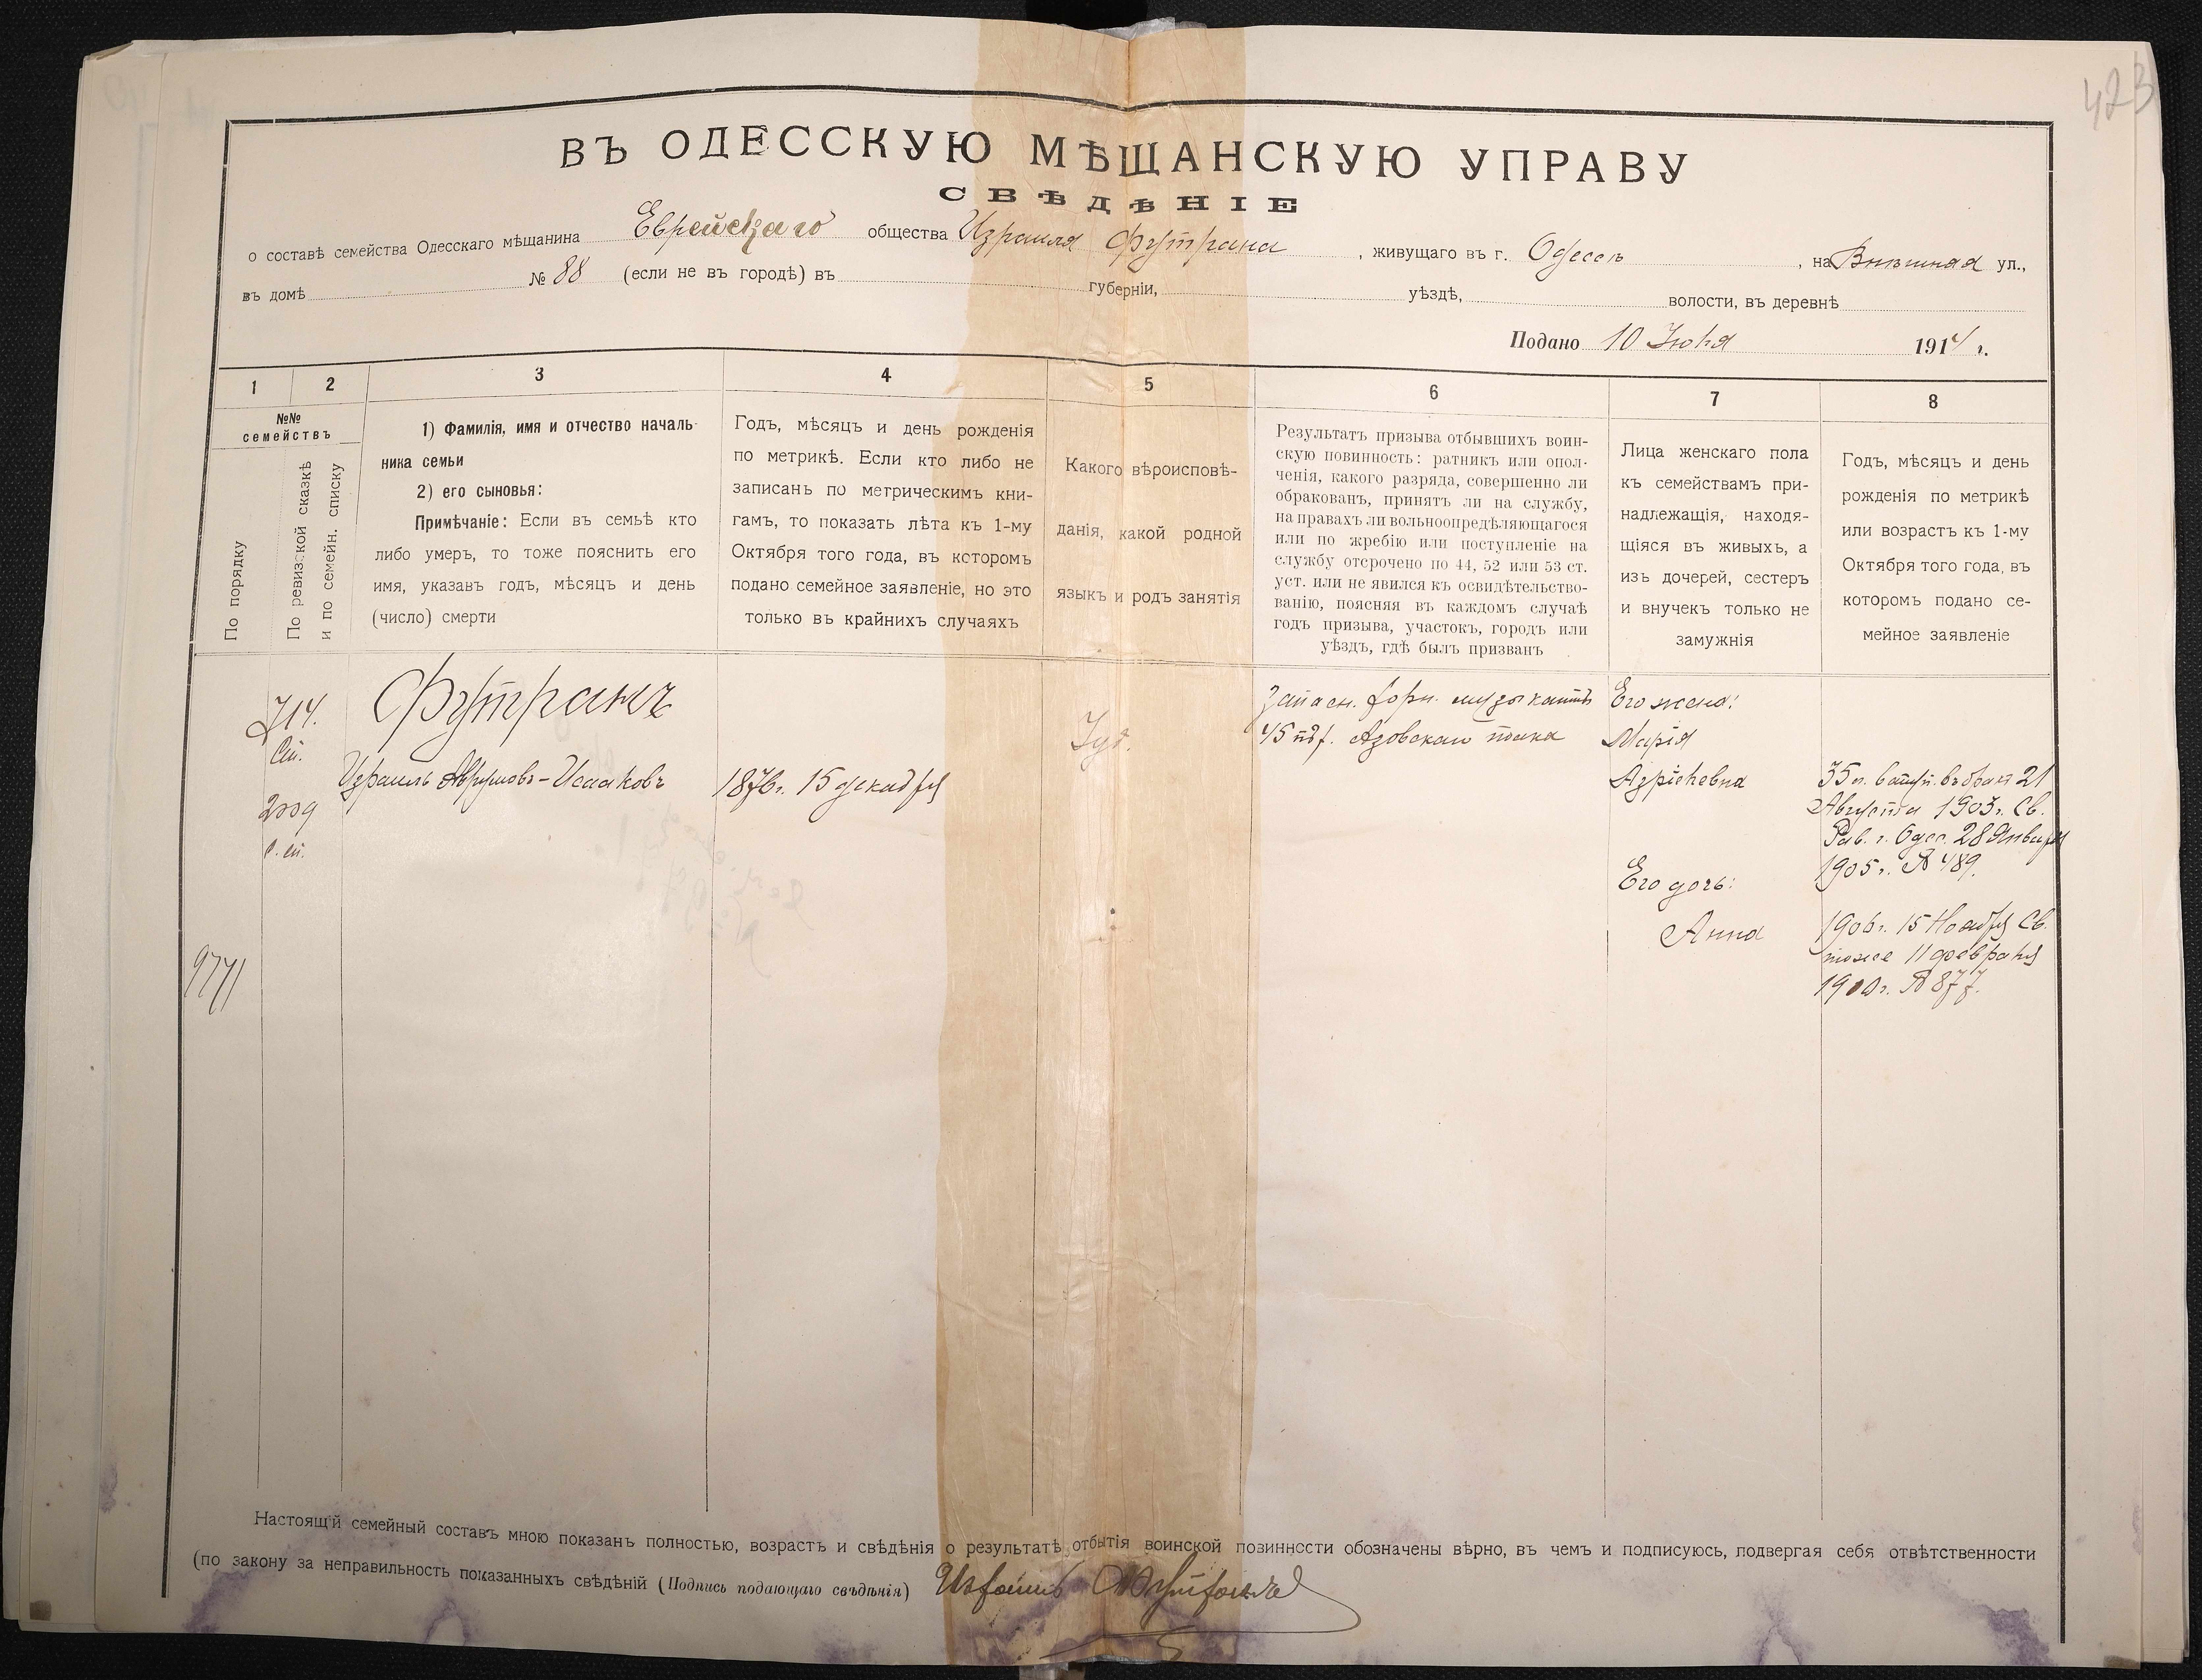 423
ВЪ ОДЕССКУЮ МѢЩАНСКУЮ УПРАВУ
СВѢДѢНІЕ
о составѣ семейства Одесскаго мѣщанина Еврейскаго общества Израиля Футрана, живущаго въ г. Одессѣ, на Внѣшная ул.,
въ домѣ № 88 (если не въ городѣ) въ губерніи, уѣздѣ, волости, въ деревнѣ
Подано 10 Іюля 1914 г.
1 2 3 4 5 6 7 8
№№
семействъ
По порядку
По ревизской сказкѣ
и по семейн. списку
1) Фамилія, имя и отчество началь-
ника семьи
2) его сыновья:
Примѣчаніе: Если въ семьѣ кто
либо умеръ, то тоже пояснить его
имя, указавъ годъ, мѣсяцъ и день
(число) смерти
Годъ, мѣсяцъ и день рожденія
по метрикѣ. Если кто либо не
записанъ по метрическимъ кни-
гамъ, то показать лѣта къ 1-му
Октября того года, въ которомъ
подано семейное заявленіе, но это
только въ крайнихъ случаяхъ
Какого вѣроисповѣ-
данія, какой родной
языкъ и родъ занятія
Результатъ призыва отбывшихъ воин-
скую повинность: ратникъ или опол-
ченія, какого разряда, совершенно ли
обракованъ, принятъ ли на службу,
на правахъ ли вольноопредѣляющагося
или по жребію или поступленіе на
службу отсрочено по 44, 52 или 53 ст.
уст. или не явился къ освидѣтельство-
ванію, поясняя въ каждомъ случаѣ
годъ призыва, участокъ, городъ или
уѣздъ, гдѣ былъ призванъ
Лица женскаго пола
къ семействамъ при-
надлежащія, находя-
щіяся въ живыхъ, а
изъ дочерей, сестеръ
и внучекъ только не
замужнія
Годъ, мѣсяцъ и день
рожденія по метрикѣ
или возрастъ къ 1-му
Октября того года, въ
которомъ подано се-
мейное заявленіе
714.
2009
9771
Футранъ
Израиль Аврумовъ-Исааковъ
1876 г. 15 декабря
Іуд.
Запасн. музыкантъ
45 Азовскаго полка
Его жена:
Марія
Азріелевна
35 л. вступ. въ бракъ 21
Августа 1903 г. Св.
Рав. г. Одес. 28 Января
1905 г. № 489.
Его дочь:
Анна
1906 г. 15 Ноября Св.
тоже 11 февраля
№ 877.
Настоящій семейный составъ мною показанъ полностью, возрастъ и свѣдѣнія о результатѣ отбытія воинской повинности обозначены вѣрно, въ чемъ и подписуюсь, подвергая себя отвѣтственности
(по закону за неправильность показанныхъ свѣдѣній (Подпись подающаго свѣдѣнія) Израиль Футранъ